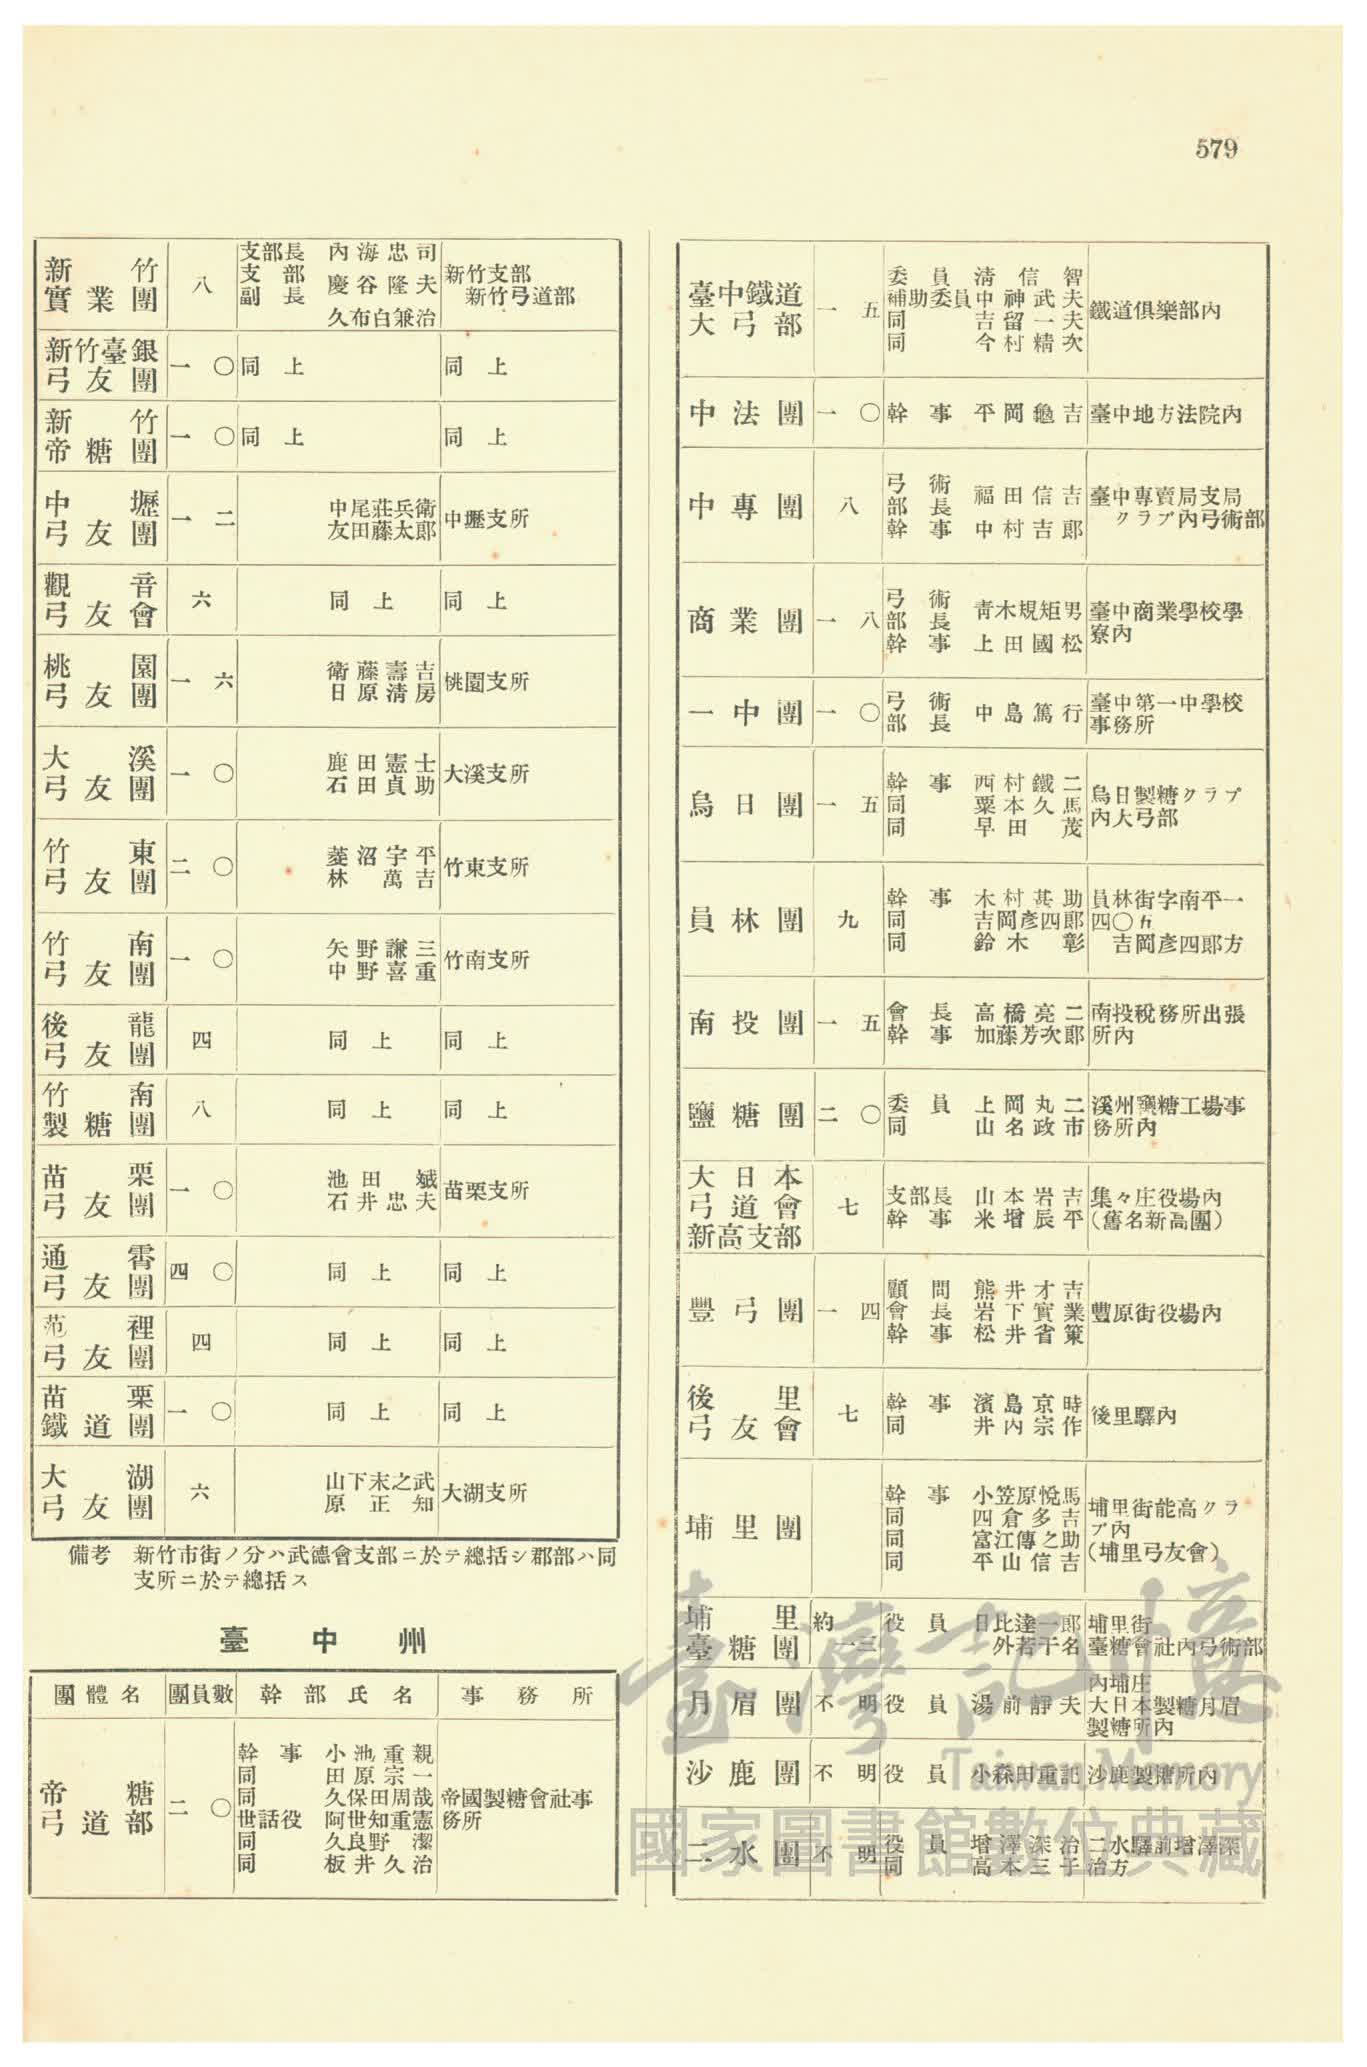 579
新竹實業團 八 支部長 內海忠司 新竹支部
支部副長 慶谷隆夫 新竹弓道部
久布白兼治
新竹臺銀弓友團 一〇 同上 同上
新竹帝糖團 一〇 同上 同上
中壢弓友團 一二 中尾莊兵衛 中壢支所
友田藤太郎
觀音弓友會 六 同上 同上
桃園弓友團 一六 衛藤壽吉 桃園支所
日原淸房
大溪弓友團 一〇 鹿田憲士 大溪支所
石田貞助
竹東弓友團 二〇 菱沼宇平 竹東支所
林萬吉
竹南弓友團 一〇 矢野謙三 竹南支所
中野喜重
後龍弓友團 四 同上 同上
竹南製糖團 八 同上 同上
苗栗弓友團 一〇 池田 苗栗支所
石井忠夫
通霄弓友團 四〇 同上 同上
范裡弓友團 四 同上 同上
苗栗鐵道團 一〇 同上 同上
大湖弓友團 六 山下末之武 大湖支所
原正知
備考 新竹市街ノ分ハ武德會支部ニ於テ總括シ郡部ハ同
支所ニ於テ總括ス
臺中州
團體名 團員數 幹部氏名 事務所
帝糖弓道部 二〇 幹事 小池重親 帝國製糖會社事務所
同 田原宗一
同 久保田周哉
世話役 阿世知重憲
同 久良野潔
同 板井久治
臺中鐵道大弓部 一五 委員 淸信智 鐵道俱樂部內
補助委員 中神武夫
同 吉留一夫
同 今村精次
中法團 一〇 幹事 平岡龜吉 臺中地方法院內
中專團 八 弓術部長 福田信吉 臺中專賣局支局
幹事 中村吉郎 クラブ內弓術部
商業團 一八 弓術部長 靑木規矩男 臺中商業學校學
幹事 上田國松 寮內
一中團 一〇 弓術部長 中島篤行 臺中第一中學校
事務所
烏日團 一五 幹事 西村鐵二 烏日製糖クラブ
同 粟本久馬 內大弓部
同 早田茂
員林團 九 幹事 木村甚助 員林街字南平一
同 吉岡彥四郎 四〇五
同 鈴木彰 吉岡彥四郎方
南投團 一五 會長 高橋亮二 南投稅務所出張
幹事 加藤芳次郎 所內
鹽糖團 二〇 委員 上岡丸二 溪州製糖工場事
同 山名政市 務所內
大日本弓道會新高支部 七 支部長 山本岩吉 集々庄役場內
幹事 米增辰平 (舊名新高團)
豐弓團 一四 顧問 熊井才吉 豐原街役場內
會長 岩下實業
幹事 松井省策
後里弓友會 七 幹事 濱島京時 後里驛內
同 井內宗作
埔里團 幹事 小笠原悅馬 埔里街能高クラ
同 四倉多吉 ブ內
同 富江傳之助 (埔里弓友會)
同 平山信吉
埔里臺糖團 約一三 役員 日比達一郎 埔里街
外若干名 臺糖會社內弓術部
月眉團 不明 役員 湯前靜夫 內埔庄
大日本製糖月眉
製糖所內
沙鹿團 不明 役員 小森田重記 沙鹿製糖所內
二水團 不明 役員 增澤深治 二水驛前增澤深
同 高本三千 治方
臺灣記憶
Taiwan Memory
國家圖書館數位典藏